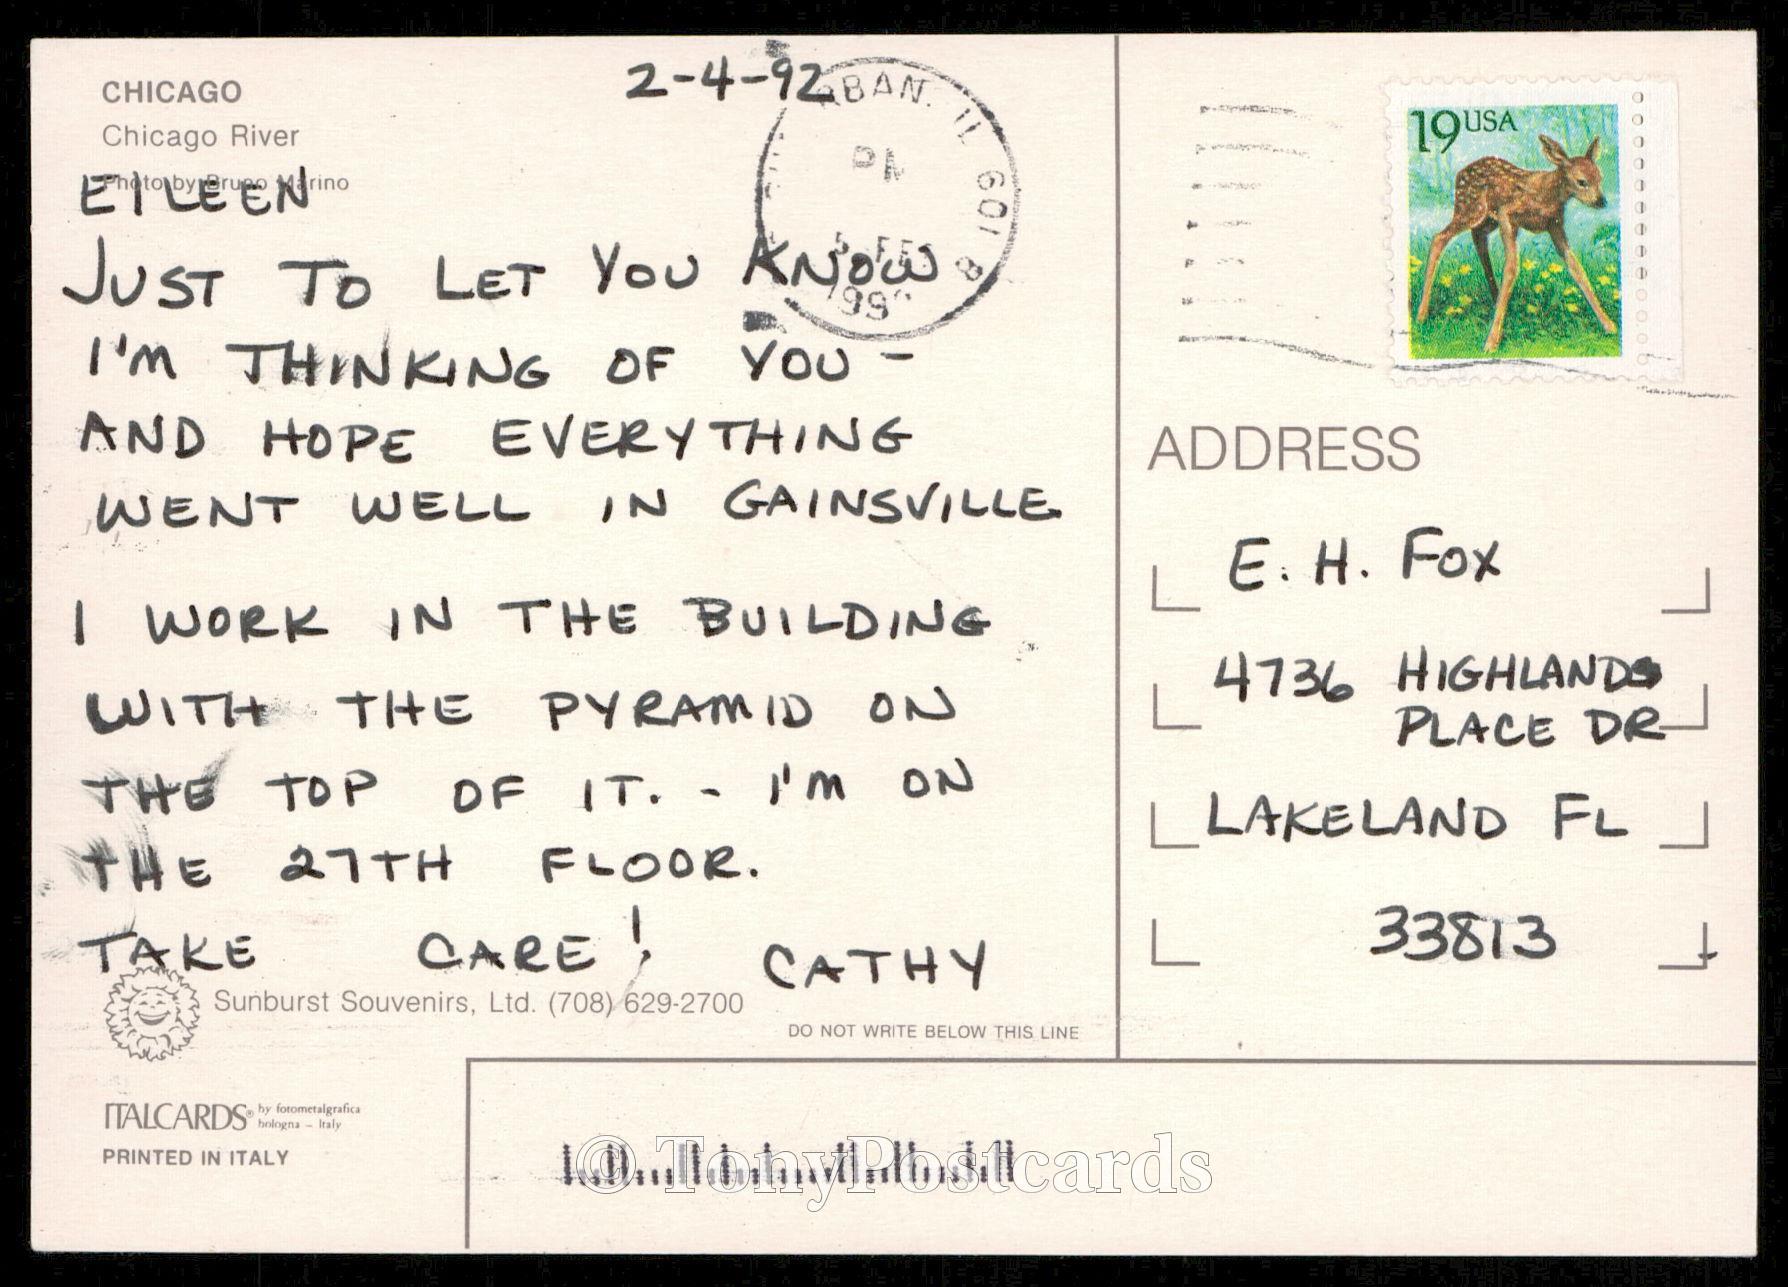 CHICAGO
Chicago River
Photo by Bruno Marino
2-4-92
BAN. IL 601 8
PM
5 FEB
199
19 USA
EILEEN
JUST TO LET YOU KNOW
I'M THINKING OF YOU -
AND HOPE EVERYTHING
WENT WELL IN GAINSVILLE
I WORK IN THE BUILDING
WITH THE PYRAMID ON
THE TOP OF IT. - I'M ON
THE 27TH FLOOR.
TAKE CARE! CATHY
Sunburst Souvenirs, Ltd. (708) 629-2700
DO NOT WRITE BELOW THIS LINE
ADDRESS
E. H. FOX
4736 HIGHLANDS
PLACE DR
LAKELAND FL
33813
ITALCARDS® by fotometalgrafica
bologna – Italy
PRINTED IN ITALY
© TonyPostcards